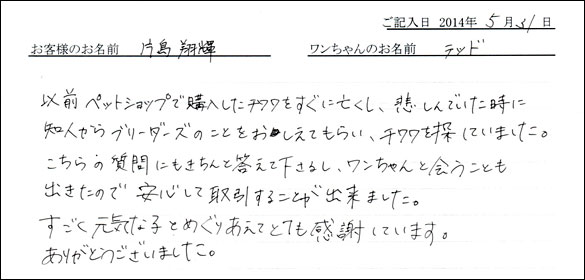 ご記入日 2014年 5月31日
お客様のお名前 片島 翔輝 ワンちゃんのお名前 テッド
以前 ペットショップで購入したチワワをすぐに亡くし、悲しんでいた時に
知人からブリーダーズのことをおしえてもらい、チワワを探していました。
こちらの質問にもきちんと答えて下さるし、ワンちゃんと会うことも
出きたので 安心して取引することが出来ました。
すごく元気な子とめぐりあえてとても感謝しています。
ありがとうございました。